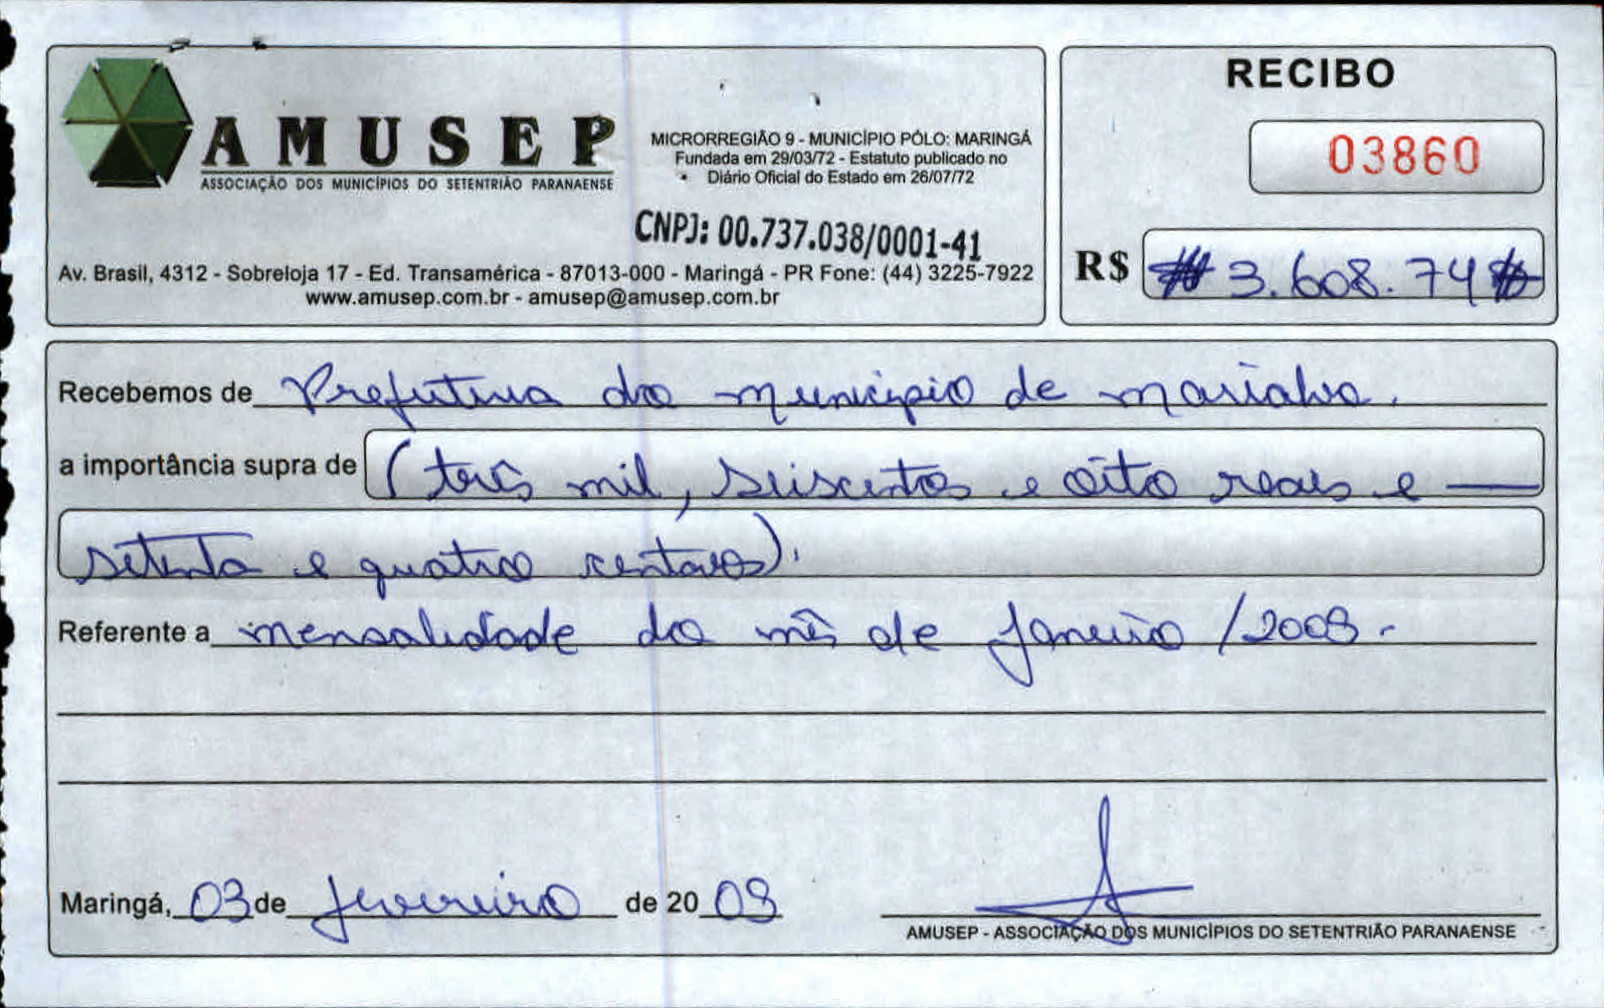 AMUSEP
ASSOCIAÇÃO DOS MUNICÍPIOS DO SETENTRIÃO PARANAENSE
MICRORREGIÃO 9 - MUNICÍPIO PÓLO: MARINGÁ
Fundada em 29/03/72 - Estatuto publicado no
Diário Oficial do Estado em 26/07/72
CNPJ: 00.737.038/0001-41
Av. Brasil, 4312 - Sobreloja 17 - Ed. Transamérica - 87013-000 - Maringá - PR Fone: (44) 3225-7922
www.amusep.com.br - amusep@amusep.com.br
RECIBO
03860
R$ # 3.608.74 #
Recebemos de Prefeitura do município de marialva.
a importância supra de (três mil, seiscentos e oito reais e —
setenta e quatro centavos).
Referente a mensalidade do mês de Janeiro /2009 -
Maringá, 03 de fevereiro de 20 09
AMUSEP - ASSOCIAÇÃO DOS MUNICÍPIOS DO SETENTRIÃO PARANAENSE